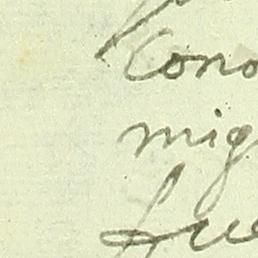 Cono
mig
fue